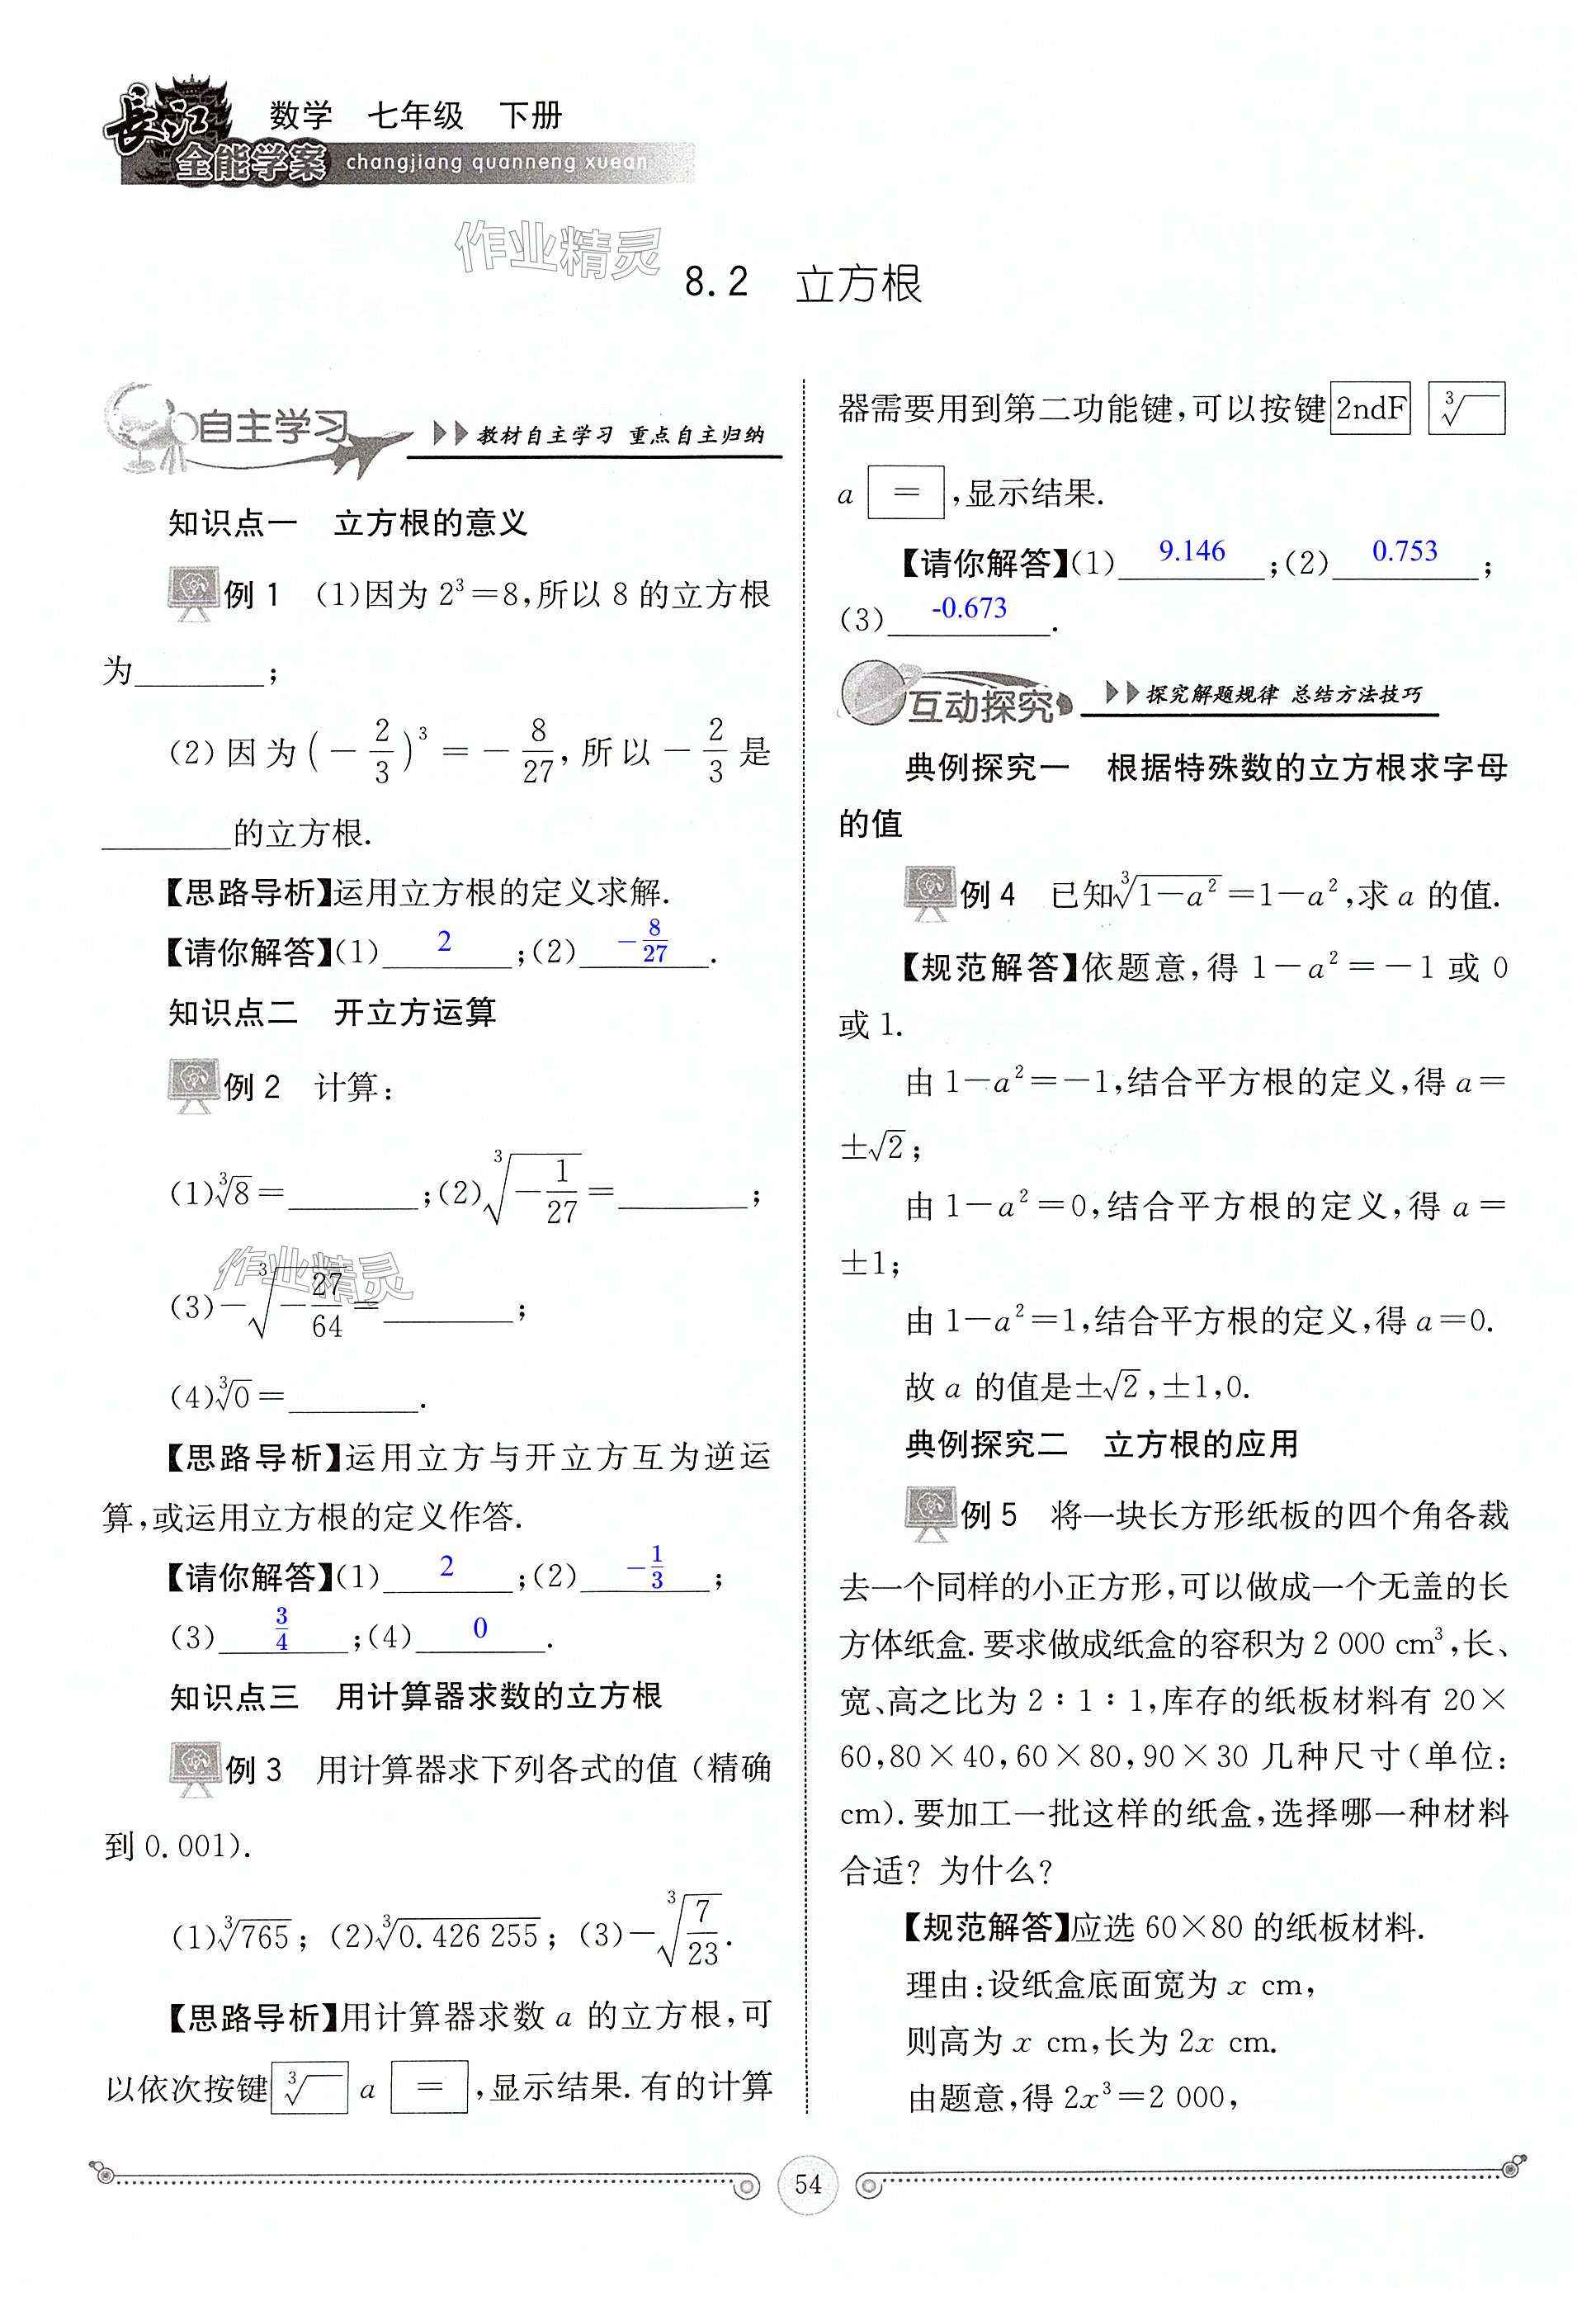 長江 数学 七年级 下册
全能学案 changjiang quanneng xuean
作业精灵
8.2 立方根
自主学习 教材自主学习 重点自主归纳
知识点一 立方根的意义
例 1 (1)因为 2³=8,所以 8 的立方根
为________;
(2)因为(-2/3)³=-8/27,所以-2/3是
________的立方根.
【思路导析】运用立方根的定义求解.
【请你解答】(1) 2 ;(2) -8/27 .
知识点二 开立方运算
例 2 计算:
(1)∛8=________;(2)∛(-1/27)=________;
作业精灵
(3)-∛(-27/64)=________;
(4)∛0=________.
【思路导析】运用立方与开立方互为逆运
算,或运用立方根的定义作答.
【请你解答】(1) 2 ;(2) -1/3 ;
(3) 3/4 ;(4) 0 .
知识点三 用计算器求数的立方根
例 3 用计算器求下列各式的值(精确
到 0.001).
(1)∛765; (2)∛0.426 255; (3)-∛(7/23).
【思路导析】用计算器求数 a 的立方根,可
以依次按键 ∛ a = ,显示结果.有的计算
器需要用到第二功能键,可以按键 2ndF ∛
a = ,显示结果.
【请你解答】(1) 9.146 ;(2) 0.753 ;
(3) -0.673 .
互动探究 探究解题规律 总结方法技巧
典例探究一 根据特殊数的立方根求字母
的值
例 4 已知∛(1-a²)=1-a²,求 a 的值.
【规范解答】依题意,得 1-a²=-1 或 0
或 1.
由 1-a²=-1,结合平方根的定义,得 a=
±√2;
由 1-a²=0,结合平方根的定义,得 a=
±1;
由 1-a²=1,结合平方根的定义,得 a=0.
故 a 的值是±√2,±1,0.
典例探究二 立方根的应用
例 5 将一块长方形纸板的四个角各裁
去一个同样的小正方形,可以做成一个无盖的长
方体纸盒.要求做成纸盒的容积为 2 000 cm³,长、
宽、高之比为 2∶1∶1,库存的纸板材料有 20×
60,80×40,60×80,90×30 几种尺寸(单位:
cm).要加工一批这样的纸盒,选择哪一种材料
合适? 为什么?
【规范解答】应选 60×80 的纸板材料.
理由:设纸盒底面宽为 x cm,
则高为 x cm,长为 2x cm.
由题意,得 2x³=2 000,
54